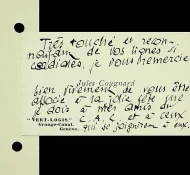 Très touché et recon-
naissant de vos lignes si
cordiales, je vous remercie
Jules Cougnard
bien vivement de vous être
associé à la jolie fête que
je dois à mes amis du
C.A.L. et à ceux
"VERT-LOGIS"
Grange-Canal.
Genève.
qui se joignirent à eux.